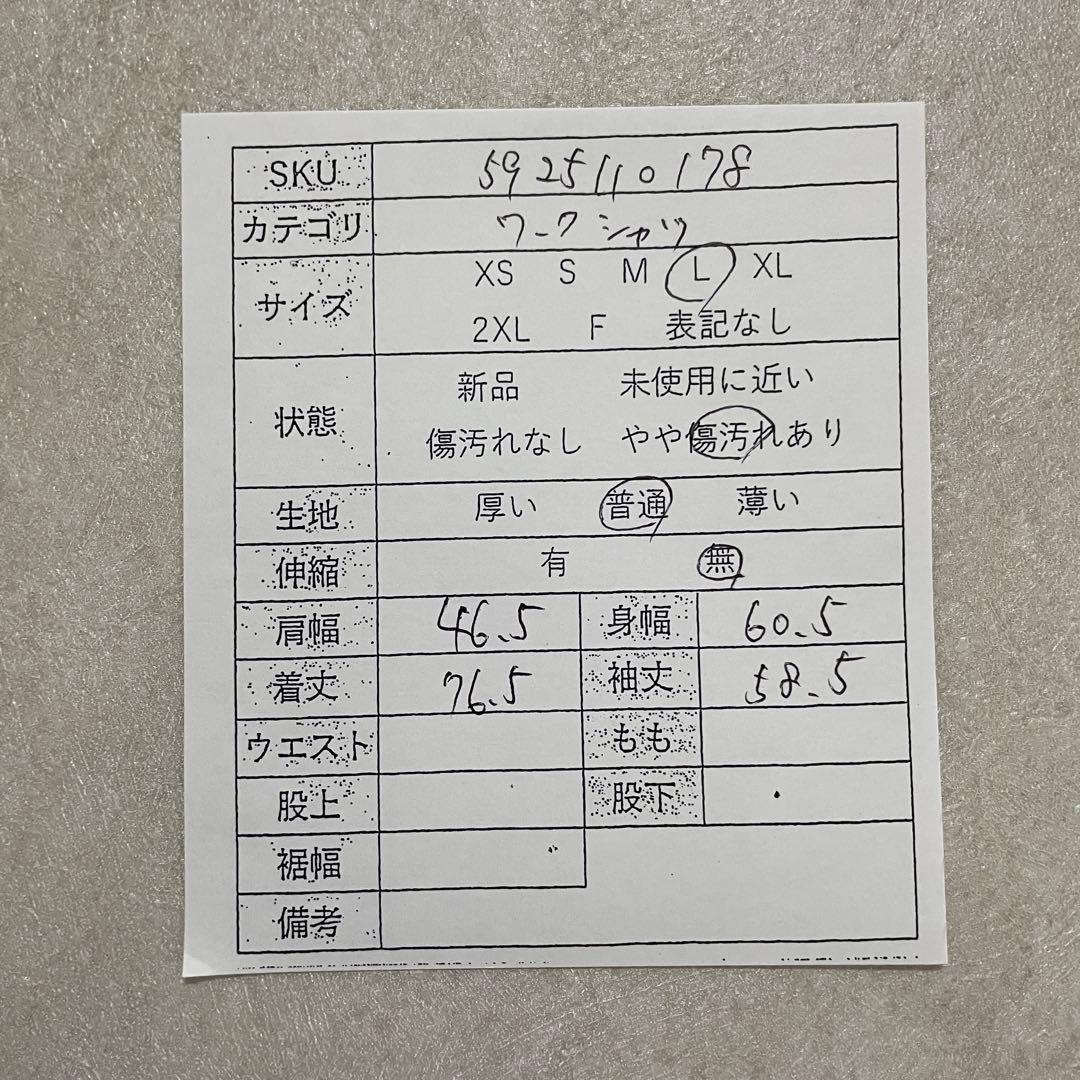 SKU 5925110178
カテゴリ ワークシャツ
サイズ XS S M L XL
2XL F 表記なし
状態 新品 未使用に近い
傷汚れなし やや傷汚れあり
生地 厚い 普通 薄い
伸縮 有 無
肩幅 46.5 身幅 60.5
着丈 76.5 袖丈 58.5
ウエスト もも
股上 股下
裾幅
備考